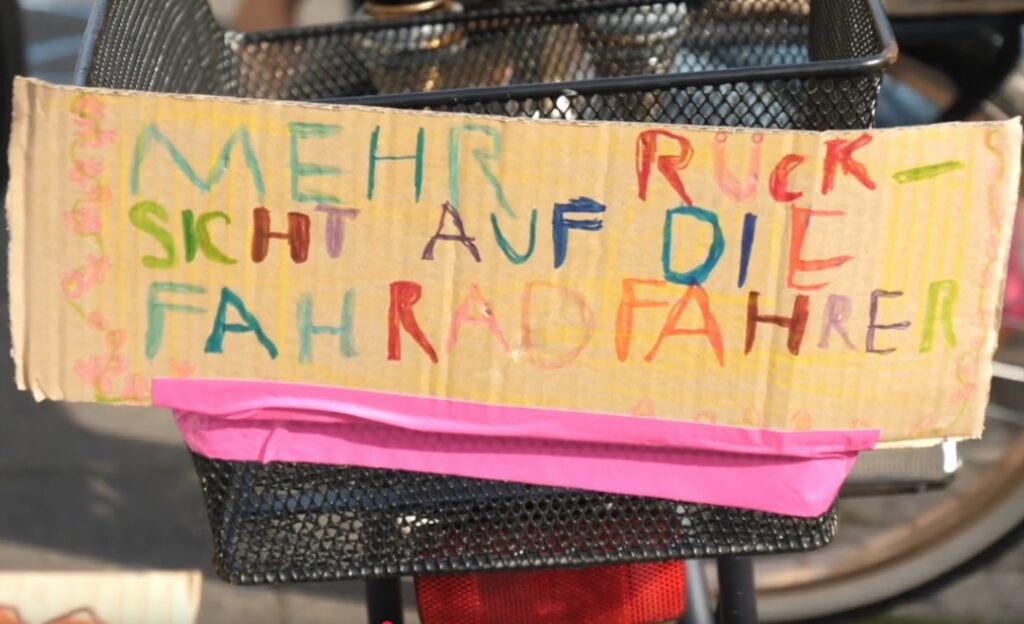 MEHR RÜcK-
SICHT AUF DIE
FAHRADFAHRER